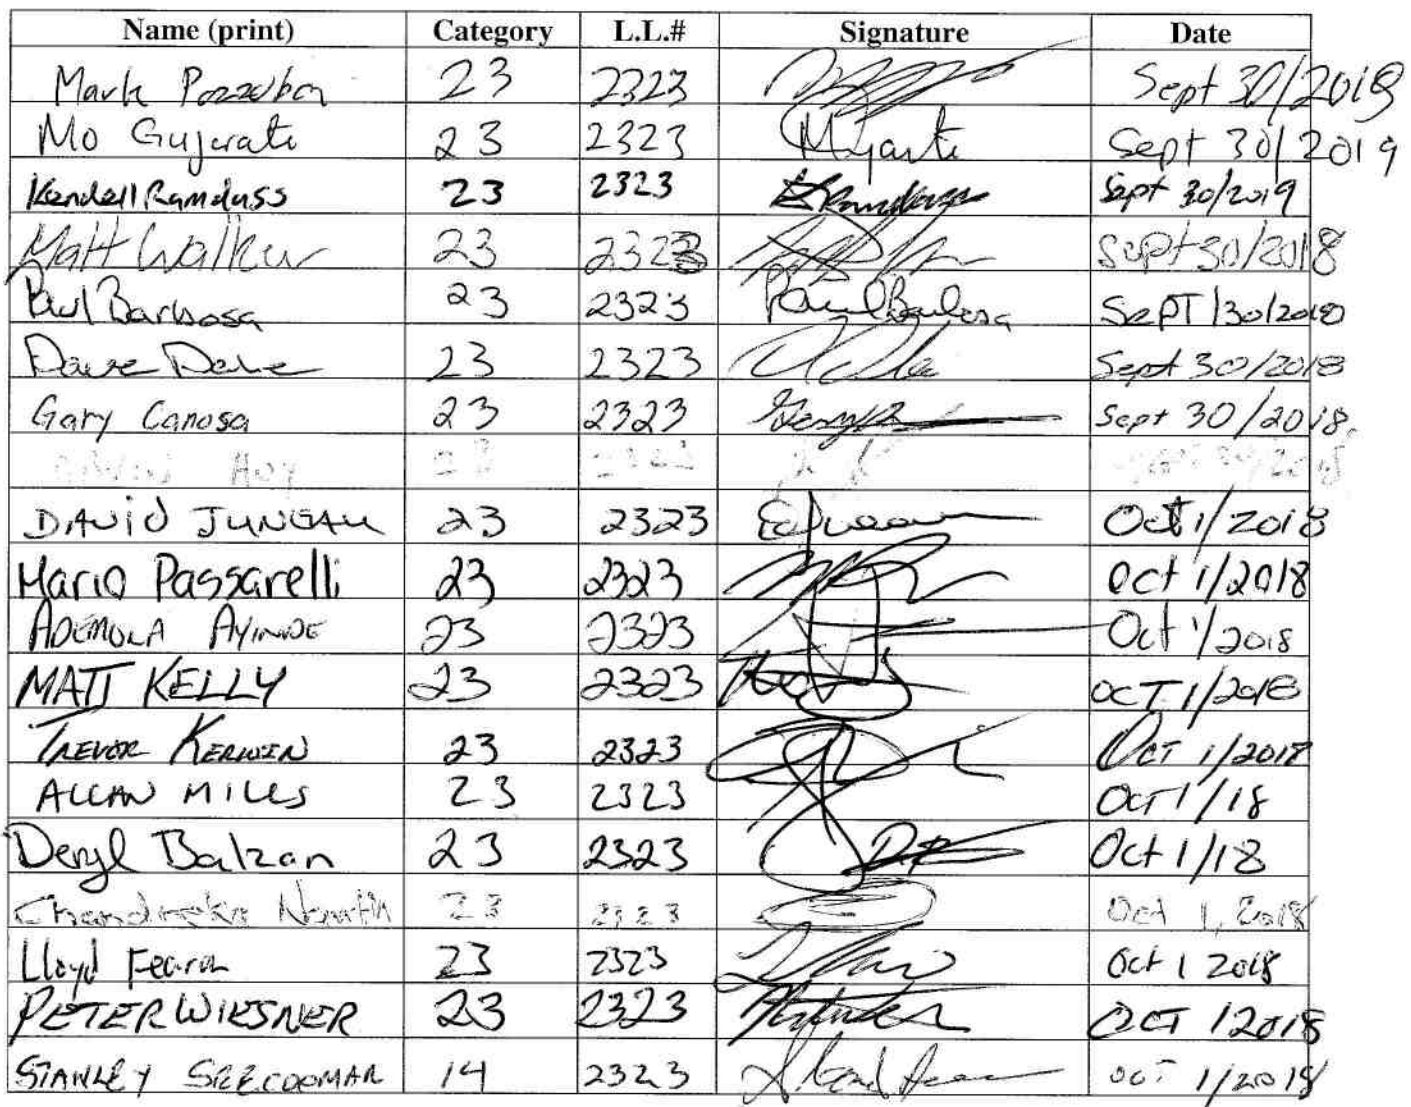 Name (print) Category L.L.# Signature Date
Mark Pozzobon 23 2323 Sept 30/2018
Mo Gujurati 23 2323 Sept 30/2019
Kendell Ramdass 23 2323 Sept 30/2019
Matt Walker 23 2323 Sept 30/2018
Paul Barbosa 23 2323 Paul Barbosa SEPT/30/2018
Dave Dale 23 2323 Sept 30/2018
Gary Canosa 23 2323 Sept 30/2018
23 2323
DAVID JUNEAU 23 2323 Oct 1/2018
Mario Passarelli 23 2323 Oct 1/2018
ADEMOLA AYINDE 23 2323 Oct 1/2018
MATT KELLY 23 2323 OCT 1/2018
TREVOR KERWIN 23 2323 OCT 1/2018
ALLAN MILLS 23 2323 OCT 1/18
Deryl Balzan 23 2323 Oct 1/18
23 2323 Oct 1, 2018
Lloyd Fearon 23 2323 Oct 1 2018
PETER WIESNER 23 2323 OCT 1 2018
STANLEY SREECOOMAR 14 2323 OCT 1/2018